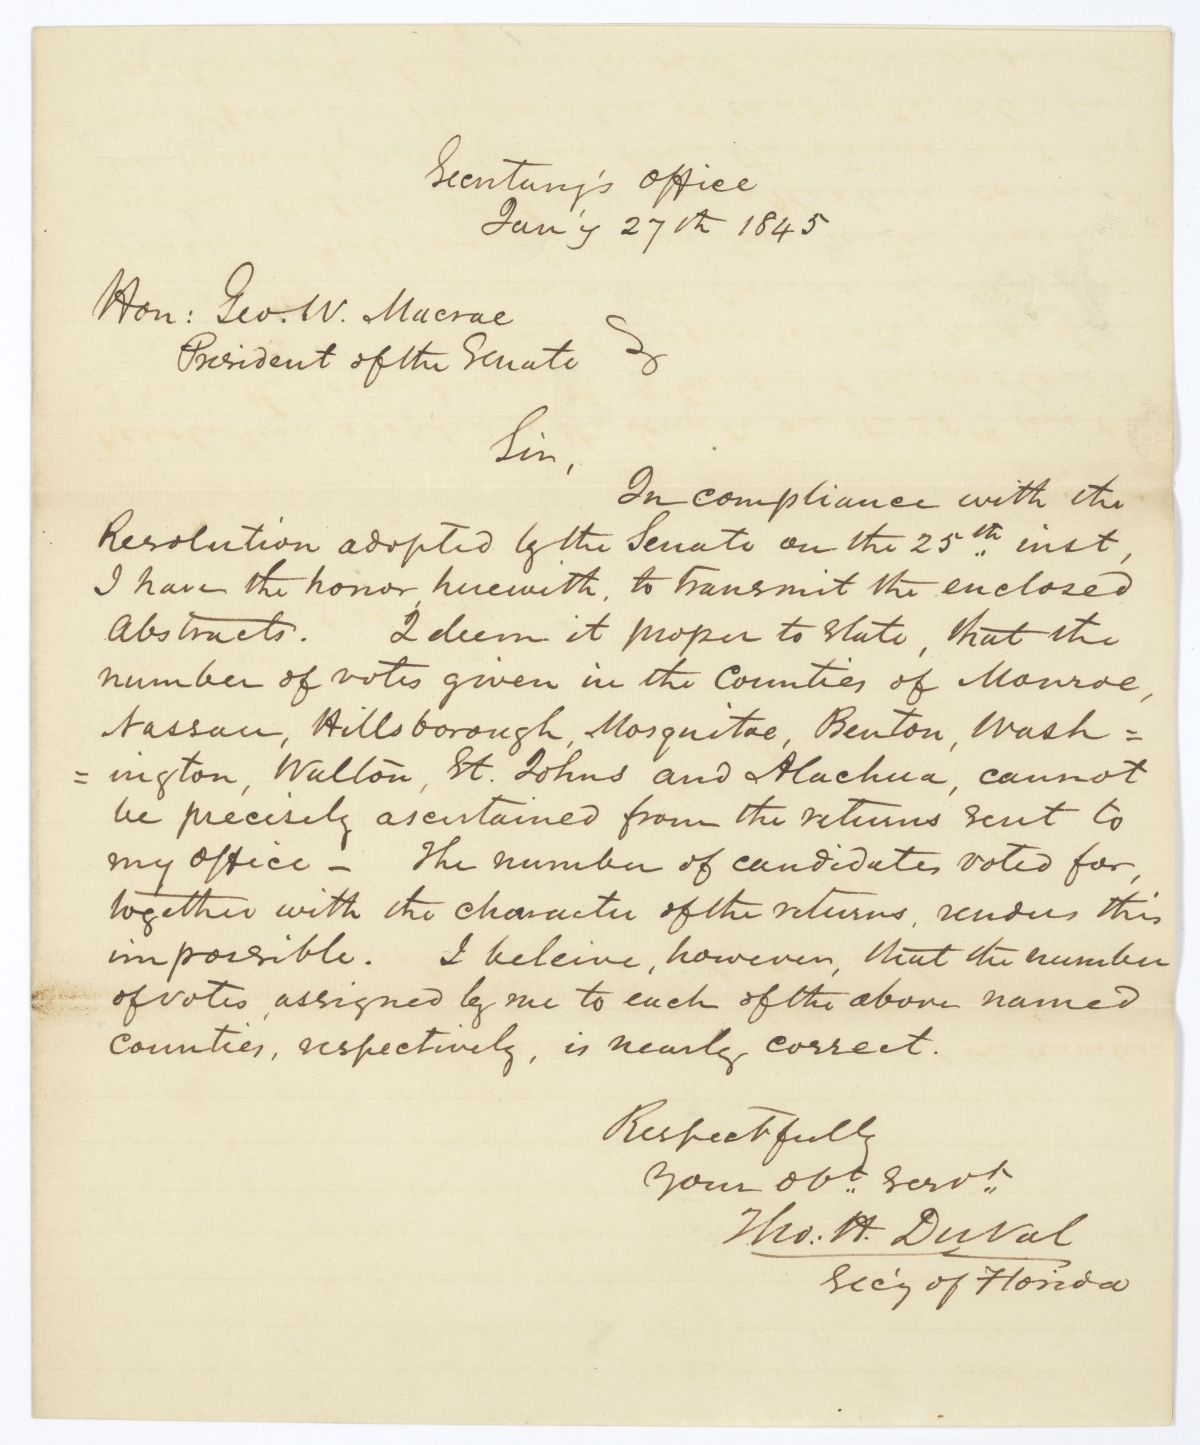 Secretary's Office
Jan'y 27th 1845
Hon: Geo. W. Macrae
President of the Senate
Sir,
In compliance with the
Resolution adopted by the Senate on the 25th inst,
I have the honor, herewith, to transmit the enclosed
Abstracts. I deem it proper to state, that the
number of votes given in the Counties of Monroe,
Nassau, Hillsborough, Mosquitoe, Benton, Wash=
=ington, Walton, St. Johns and Alachua, cannot
be precisely ascertained from the returns sent to
my office - The number of candidates voted for,
together with the character of the returns, renders this
impossible. I beleive, however, that the number
of votes, assigned by me to each of the above named
Counties, respectively, is nearly correct.
Respectfully
Your Obt. Servt.
Tho: H. DuVal
Sec'y of Florida